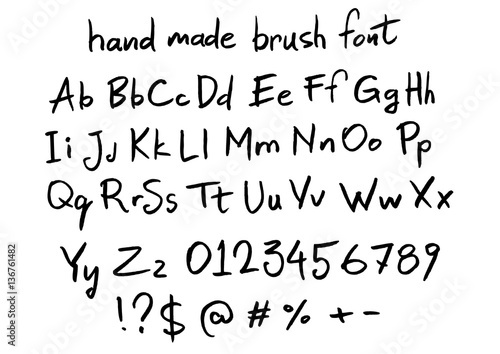 hand made brush font
Ab Bb Cc Dd Ee Ff Gg Hh
Ii Jj Kk Ll Mm Nn Oo Pp
Qq Rr Ss Tt Uu Vv Ww Xx
Yy Zz 0123456789
!?$ @ # % + -
Adobe Stock | #136761482